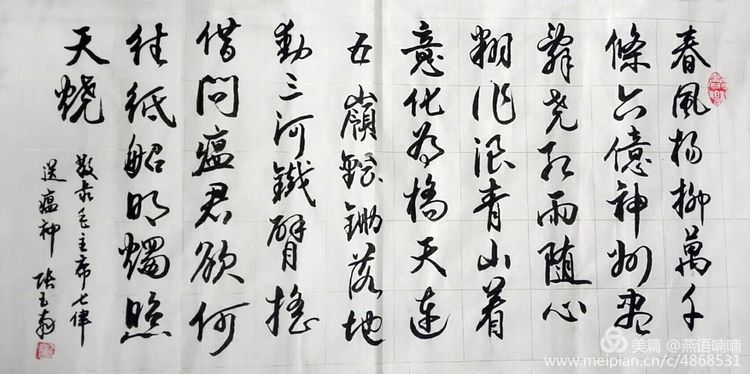 春風杨柳萬千
條六億神州盡
舜堯红雨随心
翻作浪青山着
意化为橋天連
五嶺銀鋤落地
動三河鐵臂搖
借問瘟君欲何
往纸船明燭照
天燒
敬录毛主席七律
送瘟神 张玉
美篇 @燕语喃喃
www.meipian.cn/c/4868531